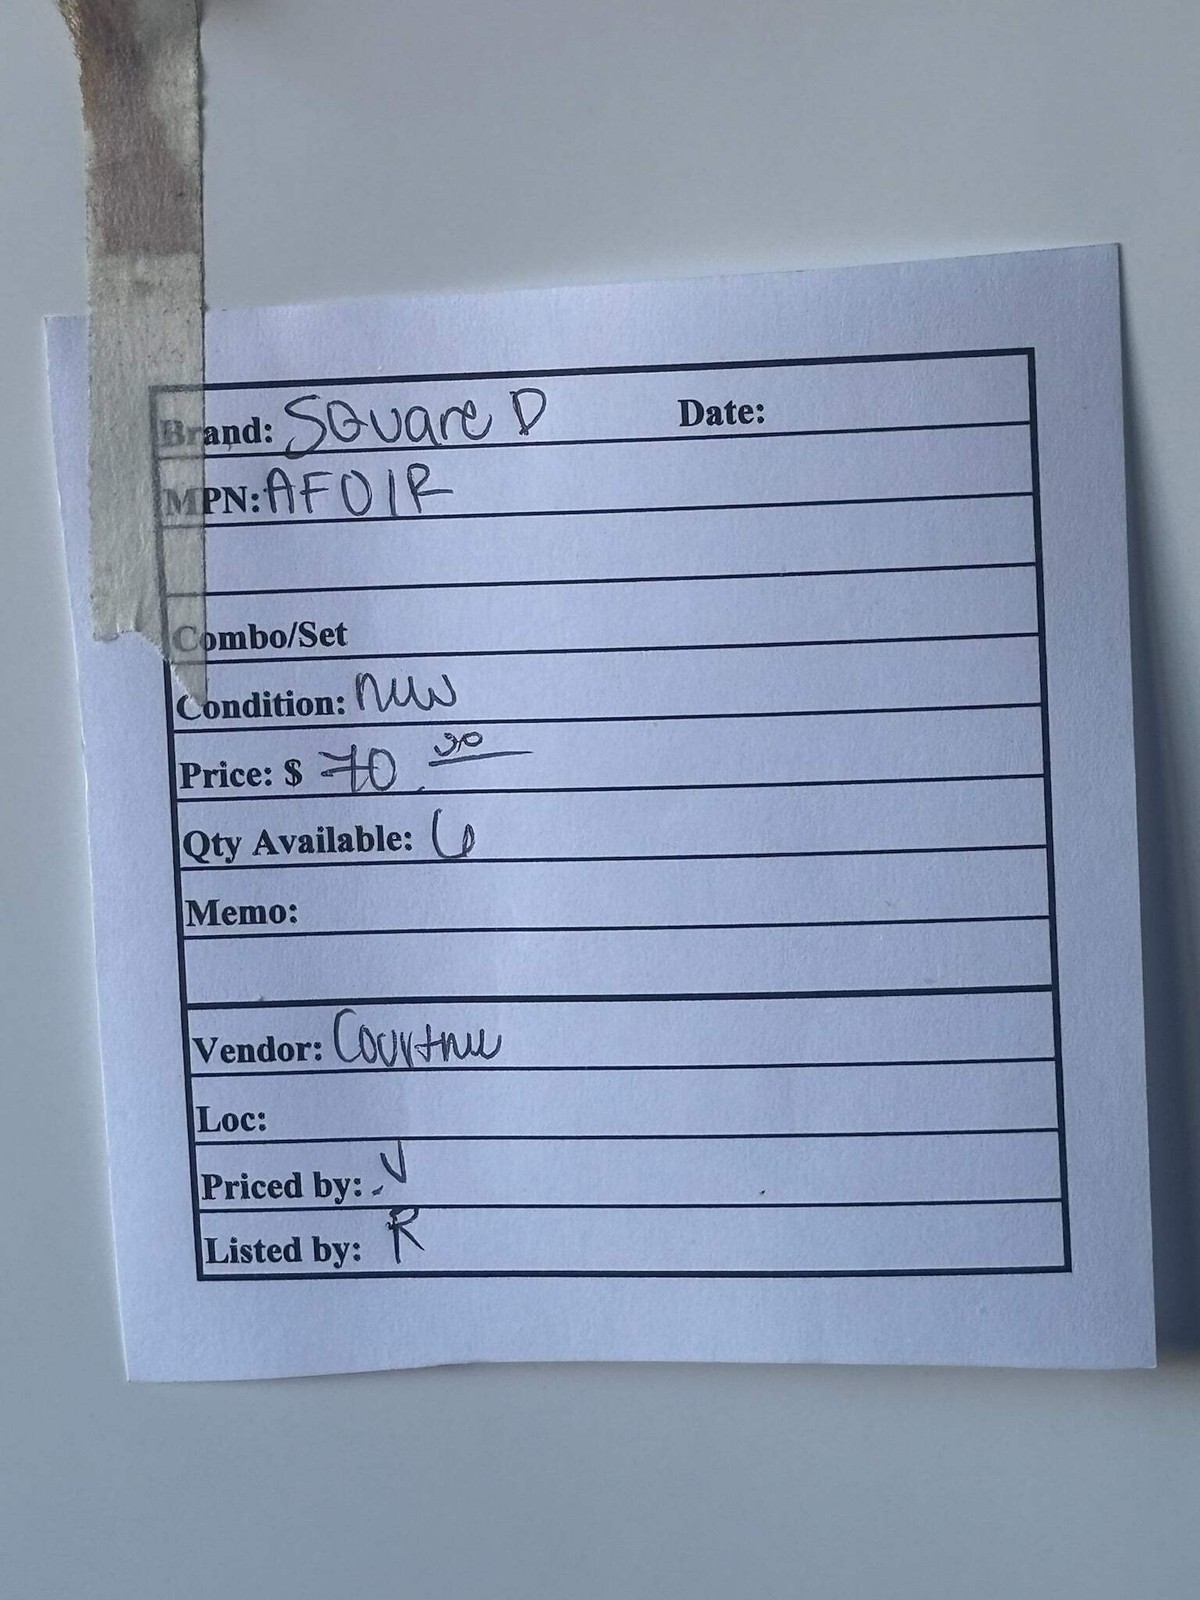 Brand: SQuare D Date:
MPN: AF01R
Combo/Set
Condition: new
Price: $ 70.
Qty Available: 6
Memo:
Vendor:
Loc:
Priced by: V
Listed by: R